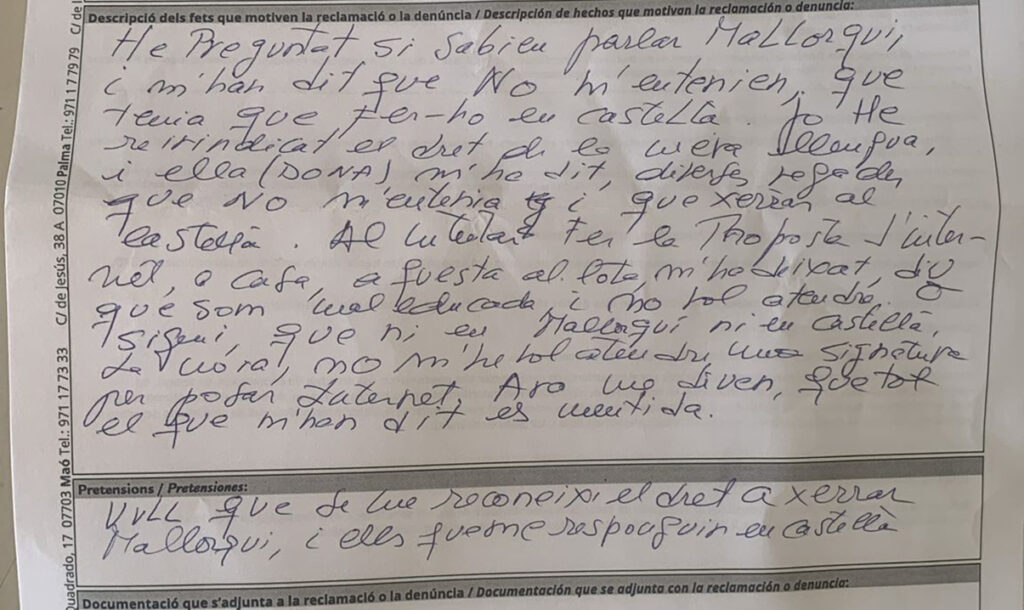 Descripció dels fets que motiven la reclamació o la denúncia / Descripción de hechos que motivan la reclamación o denuncia:
He Preguntat si sabien parlar Mallorquí,
i m'han dit que No m'entenien, que
tenia que Fer-ho en castellà. Jo He
reivindicat el dret de la meva llengua,
i ella (DONA) m'ha dit, diverses vegades
que No m'entenia i que xerràs al
castellà. Al intentar Fer la Proposta d'inter-
net, a casa, aquesta al. lota m'ha deixat, diu
que som mal educada i no vol atendre. O
sigui, que ni en Mallorquí ni en castellà,
La moral, no m'ha vol atendre una signatura
per posar Internet. Ara me diven, que tot
el que m'han dit es mentida.
Pretensions / Pretensiones:
VULL que se me reconeixi el dret a xerrar
Mallorquí, i ells que me responguin en castellà
Documentació que s'adjunta a la reclamació o la denúncia / Documentación que se adjunta con la reclamación o denuncia:
Quadrado, 17 07703 Maó Tel.: 971 17 73 33 C/ de Jesús, 38 A 07010 Palma Tel.: 971 17 79 79 C/ de